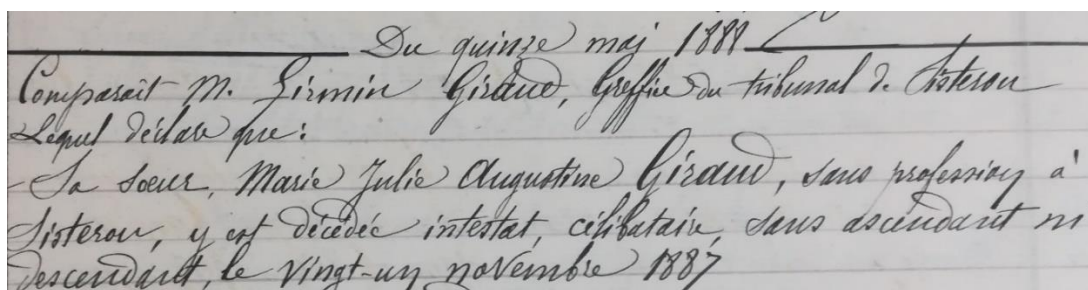 Du quinze mai 1888
Comparait M. Firmin Giraud, Greffier du tribunal de Sisteron
Lequel déclare que :
- Sa soeur, Marie Julie Augustine Giraud, sans profession à
Sisteron, y est décédée intestat, célibataire, sans ascendant ni
descendant, le vingt-un novembre 1887